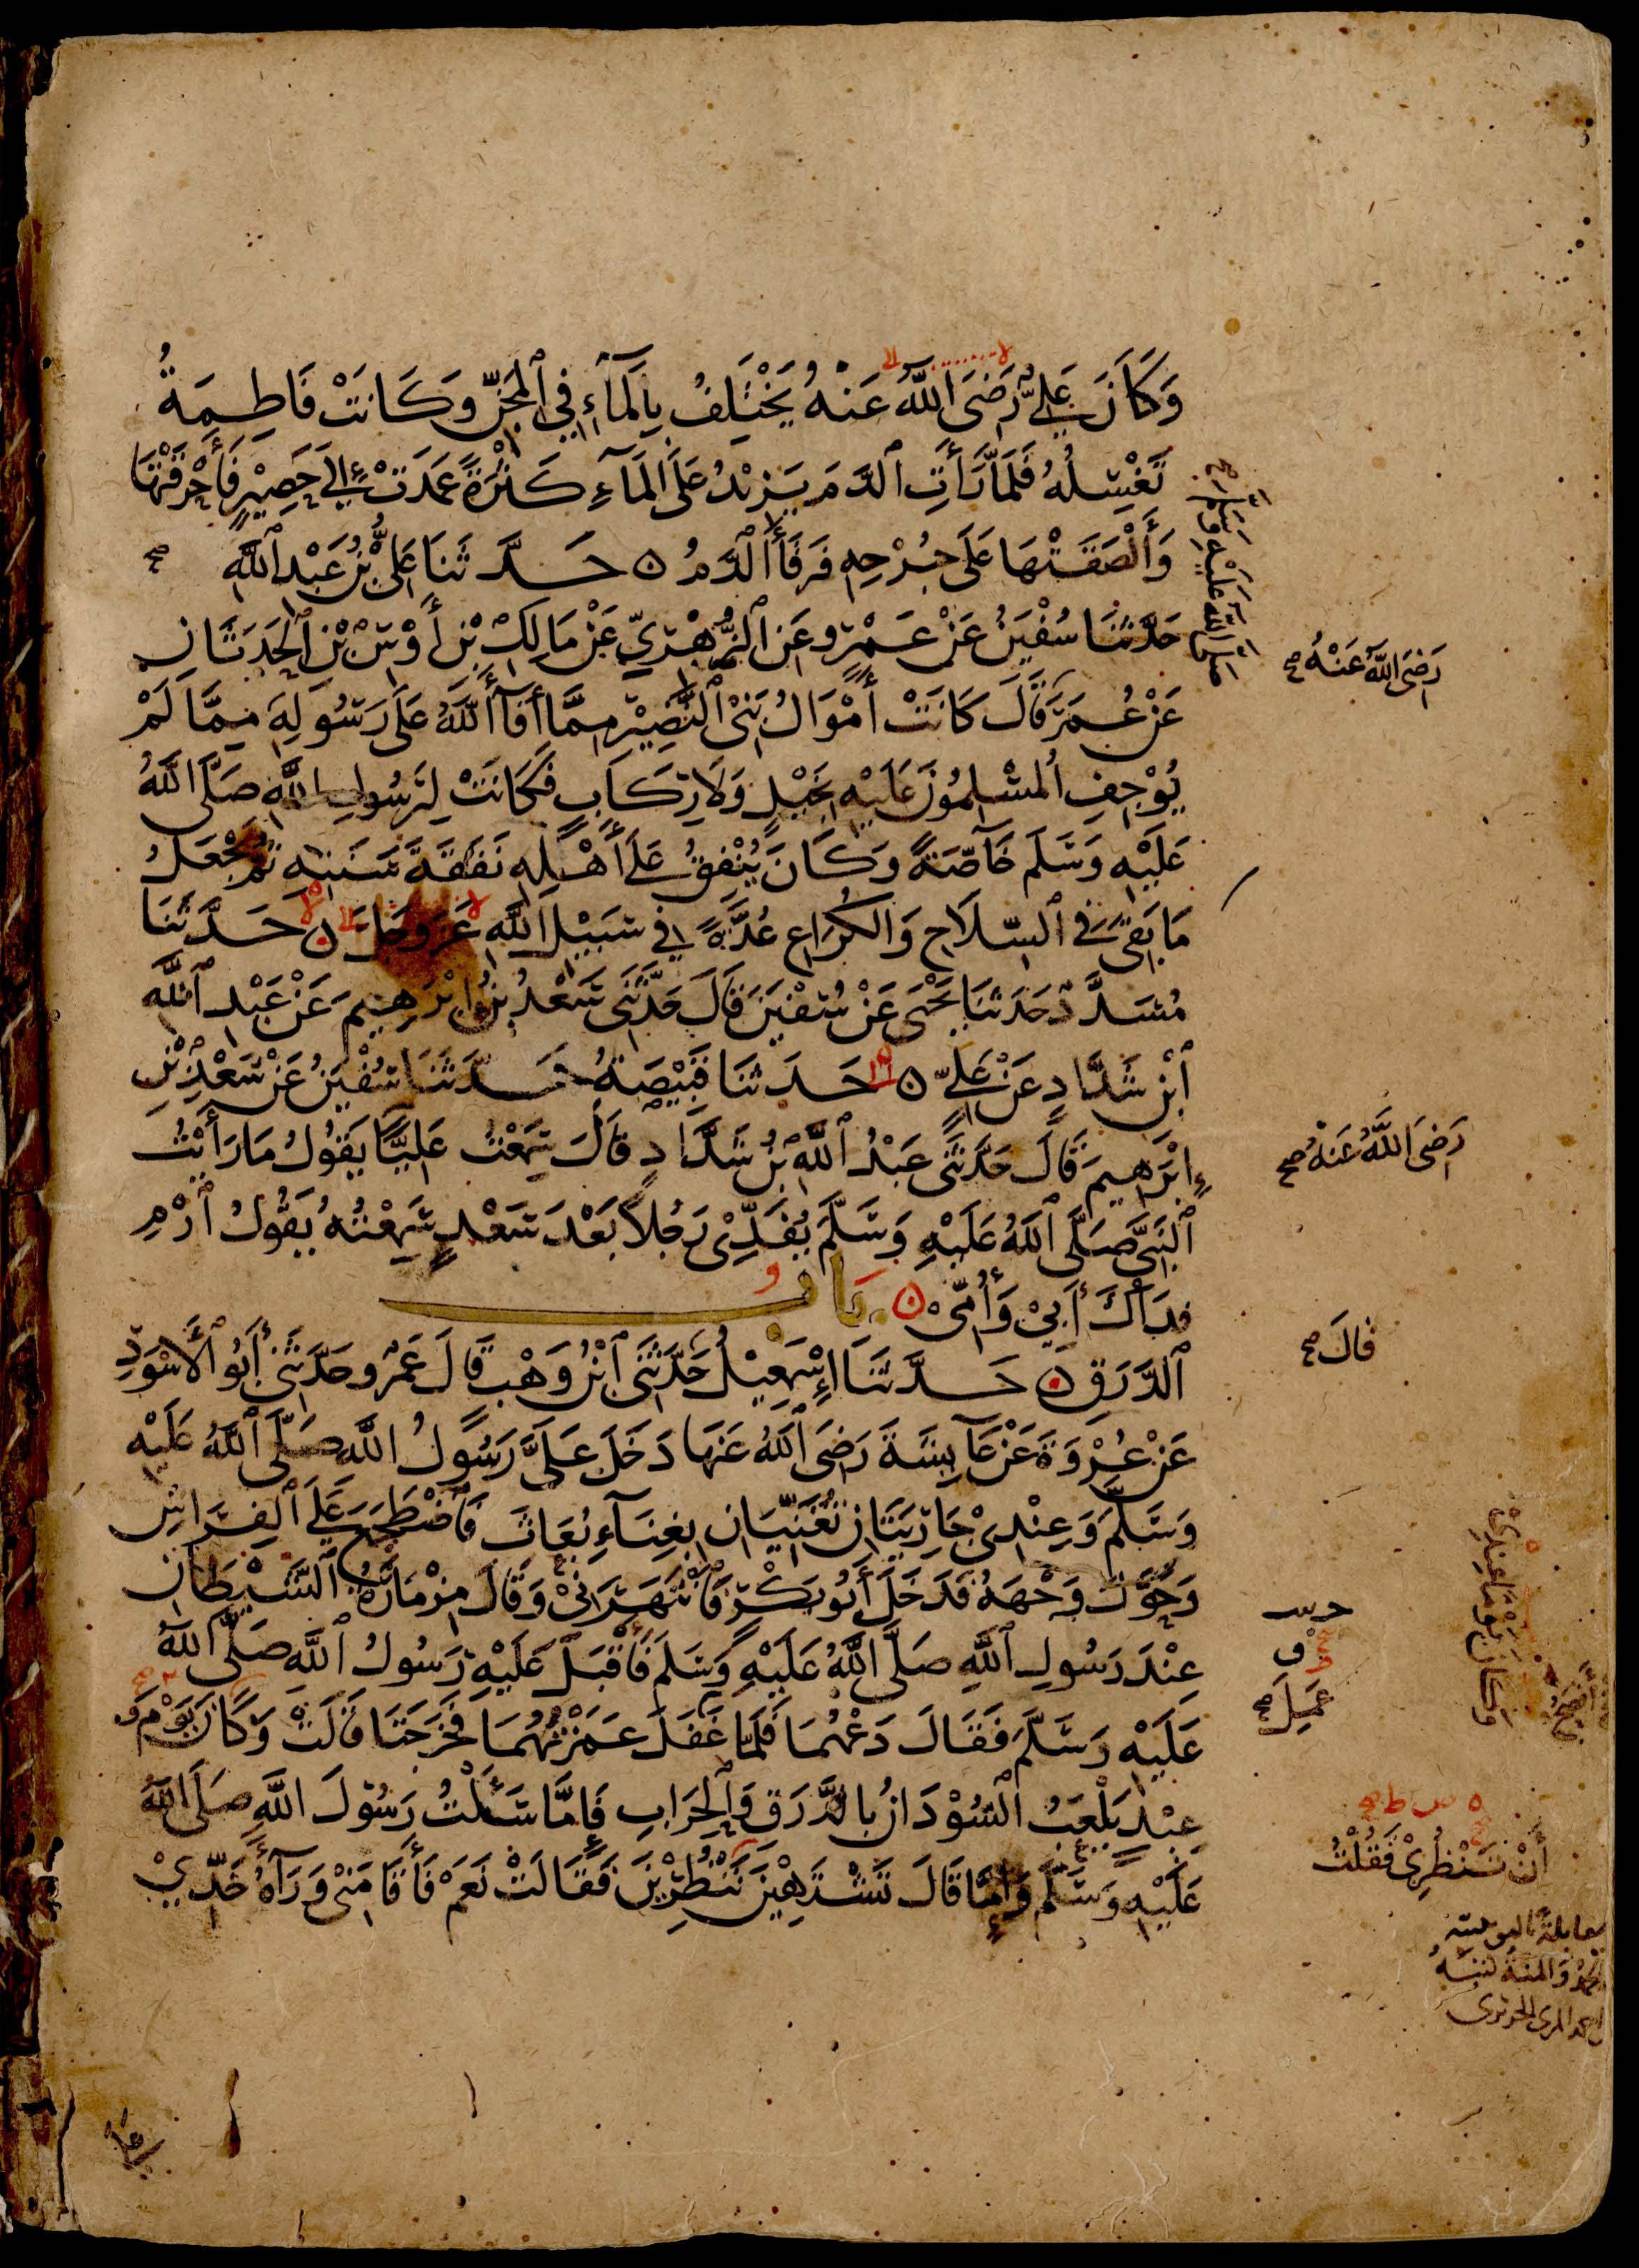 وَكَانَ عَلِيٌّ رَضِيَ اللَّهُ عَنْهُ يَخْتَلِفُ بِالْمَاءِ فِي الْمِجَنِّ وَكَانَتْ فَاطِمَةُ
تَغْسِلُهُ فَلَمَّا رَأَتِ الدَّمَ يَزِيْدُ عَلَى الْمَاءِ كَثْرَةً عَمَدَتْ إِلَى حَصِيْرٍ فَأَحْرَقَتْهَا
وَأَلْصَقَتْهَا عَلَى جُرْحِهِ فَرَقَأَ الدَّمُ ۞ حَدَّثَنَا عَلِيُّ بْنُ عَبْدِ اللَّهِ
صَلَّى اللَّهُ عَلَيْهِ وَسَلَّمَ صح
حَدَّثَنَا سُفْيَنُ عَنْ عَمْرٍو عَنِ الزُّهْرِيِّ عَنْ مَالِكِ بْنِ أَوْسِ بْنِ الْحَدَثَانِ
رَضِيَ اللَّهُ عَنْهُ صح
عَنْ عُمَرَ قَالَ كَانَتْ أَمْوَالُ بَنِي النَّضِيْرِ مِمَّا أَفَآ اللَّهُ عَلَى رَسُولِهِ مِمَّا لَمْ
يُوْجِفِ الْمُسْلِمُوْنَ عَلَيْهِ بِخَيْلٍ وَلَا رِكَابٍ فَكَانَتْ لِرَسُولِ اللَّهِ صَلَّى اللَّهُ
عَلَيْهِ وَسَلَّمَ خَآصَّةً وَكَانَ يُنْفِقُ عَلَى أَهْلِهِ نَفَقَةَ سَنَتِهِ ثُمَّ يَجْعَلُ
مَا بَقِيَ فِي السِّلَاحِ وَالْكُرَاعِ عُدَّةً فِي سَبِيْلِ اللَّهِ عَزَّ وَجَلَّ ۞ حَدَّثَنَا
مُسَدَّدٌ حَدَّثَنَا يَحْيَى عَنْ سُفْيَنَ قَالَ حَدَّثَنِي سَعْدُ بْنُ إِبْرَهِيمَ عَنْ عَبْدِ اللَّهِ
ابْنِ شَدَّادٍ عَنْ عَلِيٍّ ۞ حَدَّثَنَا قَبِيْصَةُ حَدَّثَنَا سُفْيَنُ عَنْ سَعْدِ بْنِ
إِبْرَهِيمَ قَالَ حَدَّثَنِي عَبْدُ اللَّهِ بْنُ شَدَّادٍ قَالَ سَمِعْتُ عَلِيًّا يَقُولُ مَا رَأَيْتُ
رَضِيَ اللَّهُ عَنْهُ صح
النَّبِيَّ صَلَّى اللَّهُ عَلَيْهِ وَسَلَّمَ يُفَدِّيْ رَجُلًا بَعْدَ سَعْدٍ سَمِعْتُهُ يَقُولُ ارْمِ
فِدَاكَ أَبِيْ وَأُمِّيْ ۞ بَابُ
الدَّرَقِ ۞ حَدَّثَنَا إِسْمَعِيْلُ حَدَّثَنِي ابْنُ وَهْبٍ قَالَ عَمْرٌو حَدَّثَنِي أَبُو الْأَسْوَدِ
قَالَ صح
عَنْ عُرْوَةَ عَنْ عَآيِشَةَ رَضِيَ اللَّهُ عَنْهَا دَخَلَ عَلَيَّ رَسُولُ اللَّهِ صَلَّى اللَّهُ عَلَيْهِ
وَسَلَّمَ وَعِنْدِيْ جَارِيَتَانِ تُغَنِّيَانِ بِغِنَآءِ بُعَاثَ فَاضْطَجَعَ عَلَى الْفِرَاشِ
وَحَوَّلَ وَجْهَهُ فَدَخَلَ أَبُو بَكْرٍ فَانْتَهَرَنِيْ وَقَالَ مِزْمَارَةُ الشَّيْطَانِ
عِنْدَ رَسُولِ اللَّهِ صَلَّى اللَّهُ عَلَيْهِ وَسَلَّمَ فَأَقْبَلَ عَلَيْهِ رَسُولُ اللَّهِ صَلَّى اللَّهُ
عَلَيْهِ وَسَلَّمَ فَقَالَ دَعْهُمَا فَلَمَّا غَفَلَ غَمَزْتُهُمَا فَخَرَجَتَا قَالَتْ وَكَانَ يَوْمَ
عَمِلَ صح
عِيْدٍ يَلْعَبُ السُّوْدَانُ بِالدَّرَقِ وَالْحِرَابِ فَإِمَّا سَأَلْتُ رَسُوْلَ اللَّهِ صَلَّى اللَّهُ
عَلَيْهِ وَسَلَّمَ وَإِمَّا قَالَ تَشْتَهِيْنَ تَنْظُرِيْنَ فَقَالَتْ نَعَمْ فَأَقَامَنِيْ وَرَآءَهُ خَدِّيْ
أَنْ تَنْظُرِيْ فَقُلْتُ